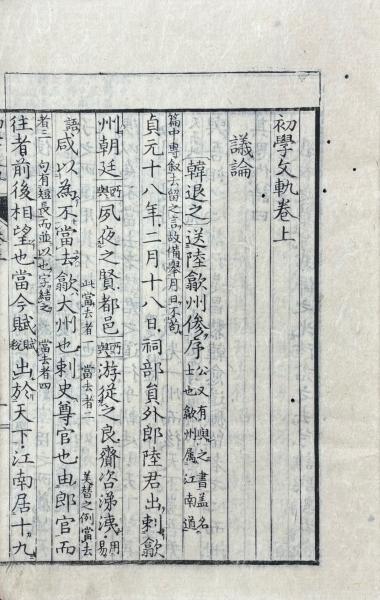 初學文軌卷上
議論
韓退之送陸歙州傪序 公又有與之書蓋名士也歙州属江南道
篇中專叙去留之言故備舉月日不苟
貞元十八年二月十八日祠部員外郎陸君出刺歙
州朝廷所與夙夜之賢都邑所與游従之良齎咨涕洟用易
此當去者一 當去者二 美替之例當去
語咸以為不當去歙大州也刺史尊官也由郎官而
者三 句有短長而並以也字結之 當去者四
往者前後相望也當今賦賦稅出於天下江南居十九